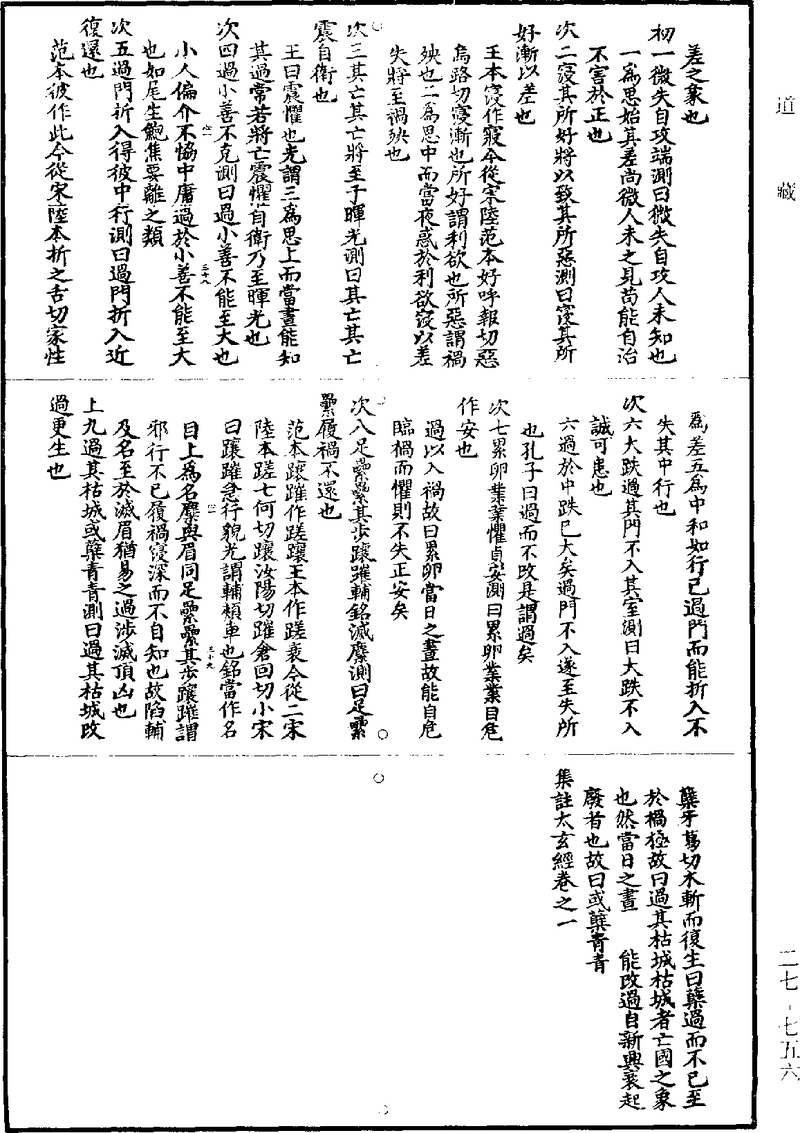 道藏
差之象也
初一微失自攻端測曰微失自攻人未知也
一爲思始其差尚微人未之見苟能自治
不害於正也
次二寖其所好將以致其所惡測曰寖其所
好漸以差也
王本寖作寢今從宋陸范本好呼報切惡
烏路切寖漸也所好謂利欲也所惡謂禍
殃也二爲思中而當夜惑於利欲寖以差
失將至禍殃也
次三其亡其亡將至于暉光測曰其亡其亡
震自衛也
王曰震懼也光謂三爲思上而當晝能知
其過常若將亡震懼自衛乃至暉光也
次四過小善不克測曰過小善不能至大也
小人偏介不恊中庸過於小善不能至大
也如尾生鮑焦要離之類
次五過門折入得彼中行測曰過門折入近
復還也
范本彼作此今從宋陸本折之舌切家性
爲差五爲中和如行已過門而能折入不
失其中行也
次六大跌過其門不入其室測曰大跌不入
誠可患也
六過於中跌已大矣過門不入遂至失所
也孔子曰過而不改是謂過矣
次七累卵業業懼貞安測曰累卵業業自危
作安也
過以入禍故曰累卵當日之晝故能自危
臨禍而懼則不失正安矣
次八足纍纍其步躟蹝輔銘滅麋測曰足纍
纍履禍不還也
范本躟蹝作蹉躟王本作蹉衰今從二宋
陸本蹉七何切躟汝陽切蹝倉回切小宋
曰躟蹝急行貌光謂輔頰車也銘當作名
目上爲名麋與眉同足纍纍其步躟蹝謂
邪行不已履禍寖深而不自知也故陷輔
及名至於滅眉猶易之過涉滅頂凶也
上九過其枯城或蘖青青測曰過其枯城改
過更生也
蘖牙葛切木斬而復生曰蘖過而不已至
於禍極故曰過其枯城枯城者亡國之象
也然當日之晝 能改過自新興衰起
廢者也故曰或蘖青青
集註太玄經卷之一
二七-七五六